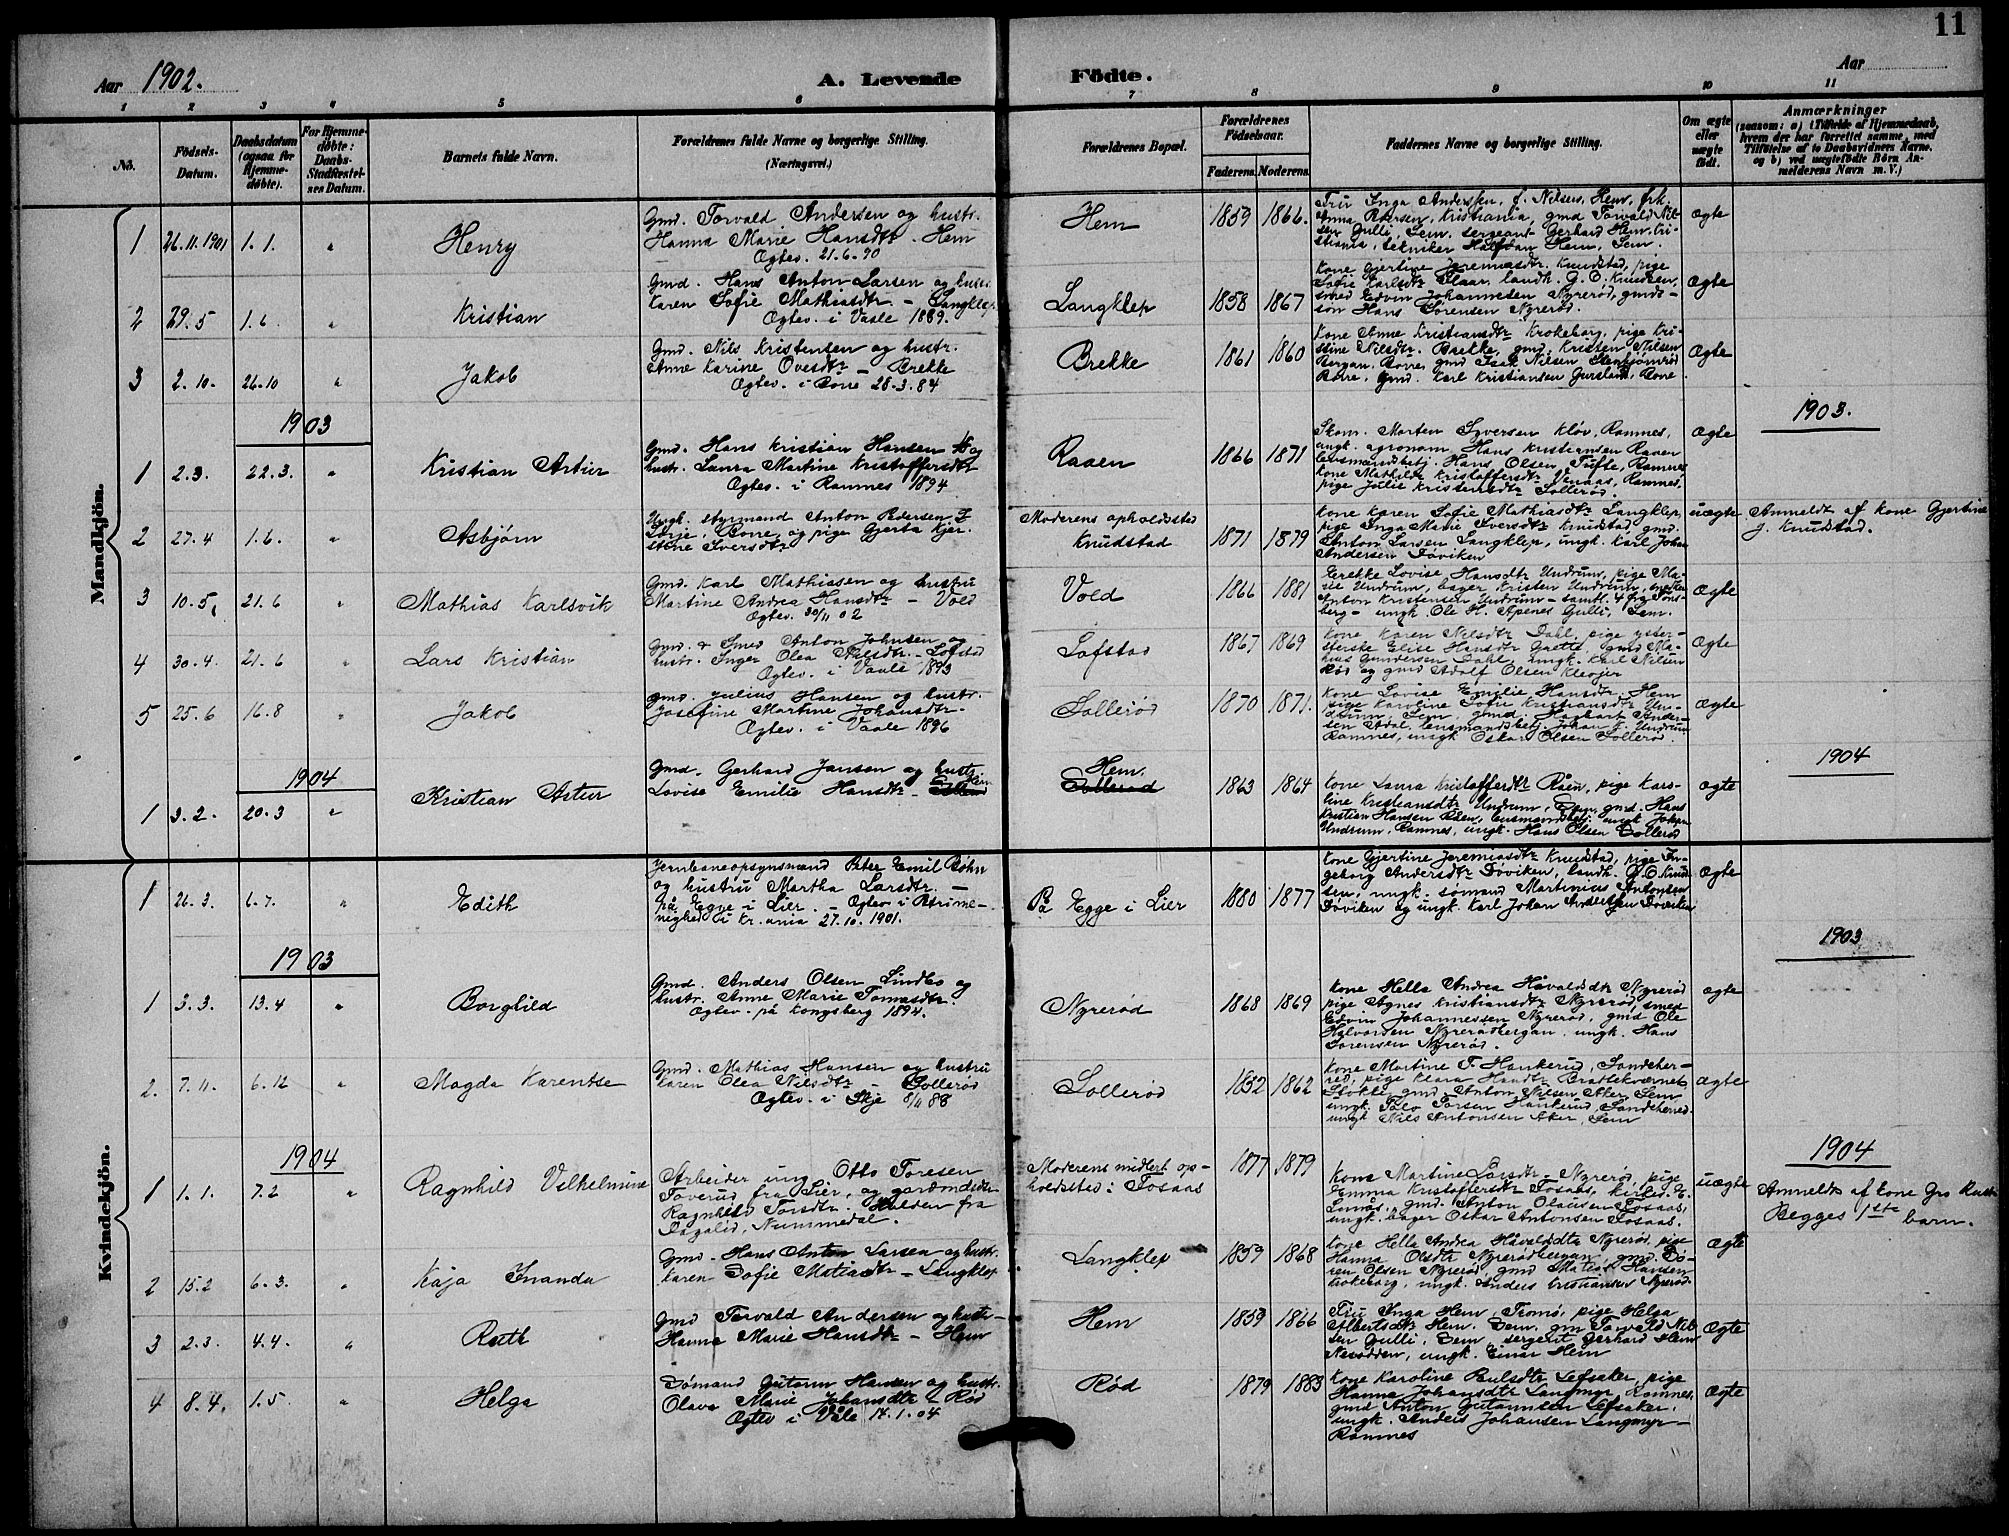 11
Aar 1902.
A. Levende Fødte.
Aar
1 2 3 4 5 6 7 8 9 10 11
No.
Fødsels-Datum.
Daabsdatum (ogsaa for Hjemme-døbte).
For Hjemme-døbte: Daabs-Stadfæstel-ses Datum.
Barnets fulde Navn.
Forældrenes fulde Navne og borgerlige Stilling.
(Næringsvei.)
Forældrenes Bopæl.
Forældrenes Fødselsaar.
Faderens. Moderens.
Faddernes Navne og borgerlige Stilling.
Om ægte eller uægte født.
Anmærkninger
(saasom: a) i Tilfælde af Hjemmedaab,
hvem der har forrettet samme, med
Tilføielse af to Daabsvidners Navne.
og b) ved uægtefødte Børn An-
melderens Navn m. V.)
Mandkjön.
1 26.11.1901 1.1. " Henry
Gmd. Torvald Andersen og hustr.
Hanna Marie Hansdtr. Hem
Ægtev. 21.6.90
Hem 1859 1866.
Fru Inga Andersen, f. Nilsen, Hem, frk.
Anna Petersen, Kristiania, gmd Torvald Nil-
sen Gulli, Sem, sergeant Gerhard Hem, Kri-
stiania, tekniker Halfdan Hem, Sem.
ægte
2 29.5 1.6. " Kristian
Gmd. Hans Anton Larsen og hustr.
Karen Sofie Mathiasdtr. – Langklep.
Ægtev. i Vaale 1889.
Langklep 1858 1867
Kone Gjertine Jeremiasdtr. Knudstad, pige
Sofie Karlsdtr. , landh. G. O. Knudsen,
smed Edvin Johannesen Nyrerød, gmds-
søn Hans Sørensen Nyrerød.
Ægte
3 2.10. 26.10 " Jakob
Gmd. Nils Kristensen og hustr.
Anne Karine Ovesdtr – Brekke
Ægtev. i Borre 28.3.84
Brekke 1861 1860
Kone Anne Kristiansdtr Krokeborg, pige Kri-
stine Nilsdtr. Brekke, gmd. Kristen Nilsen
Bergan, Borre, gmd Isak Nilsen
Borre, Gmd. Karl Kristiansen , Borre
Ægte
1903
1903.
1 2.3. 22.3. " Kristian Artur
Gmd. Hans Kristian Hansen og
hustr. Laura Martine Kristoffersdtr
Ægtev. i Ramnes 1894
Raaen 1866 1871
Skom. Morten Syversen Kløv, Ramnes,
ungk. agronom Hans Kristiansen Raaen
lensmandsbetj. Hans Olsen Tufte, Ramnes
Kone Mathilde Kristoffersdtr Venaas, Ramnes,
pige Julie Kristensdtr Sollerød.
Ægte
2 27.4 1.6. " Asbjørn
Ungk. styrmand Anton Pedersen
, Borre, og pige Gjerta Kjer-
stine Iversdtr
Moderens opholdssted
Knudstad 1871 1879
Kone Karen Sofie Mathiasdtr Langklep,
pige Inga Marie Iversdtr Knudstad, gmd.
Anton Larsen Langklep, ungk. Karl Johan
Andersen Døviken
uægte
Anmeldt af kone Gjertine
J. Knudstad.
3 10.5. 21.6 " Mathias Karlsvik
Gmd. Karl Mathiasen og hustru
Martine Andrea Hansdtr – Vold
Ægtev. 30/11 02
Vold 1866 1881
Enkke Lovise Hansdtr Undrum, pige Ma-
rie Undrum, bager Kristen Undrum,
Anton Kristensen Undrum – samtl. 4 fra Tøns-
berg – ungk. Ole H. Apenes Gulli, Sem.
Ægte
4 30.4. 21.6 " Lars Kristian
Gmd. & Smed Anton Johnsen og
hustr. Inger Olea Nilsdtr. – Lofstad
Ægtev. i Vaale 1893
Lofstad 1867 1869
Kone Karen Nilsdtr Dahl, pige
Elise Hansdtr Grette, gmd Ma-
Gundersen Dahl, ungk. Karl Nilsen
Rød og gmd Adolf Olsen Klevjer
Ægte
5 25.6 16.8 " Jakob
Gmd. Julius Hansen og hustr.
Josefine Martine Johansdtr.
Ægtev. i Vaale 1896
Sollerød 1870 1871.
Kone Lovise Emilie Hansdtr. Hem
pige Karoline Sofie Kristiansdtr Un-
drum, Sem, gmd. Hagbart Ander-
sen Adal, lensmandsbetj. Johan F. Undrum
Ramnes, ungk Oskar Olsen Sollerød.
ægte
1904
1904
1 3.2. 20.3 " Kristian Artur
Gmd. Gerhard Jansen og hustr
Lovise Emilie Hansdtr. Hem
Hem.
Sollerød 1863 1864
Kone Laura Kristoffersdtr Råen, pige Karo-
line Kristiansdtr Undrum, Sem, gmd. Hans
Kristian Hansen Råen, lensmandsbetj. ungk Johan
Undrum, Ramnes, ungk. Hans Olsen Sollerød
ægte
Kvindekjön.
1 26.3. 6.7. " Edith
Jernbaneopsynsmand Peter Emil Bøhn
og hustru Martha Larsdtr. –
på Egge i Lier. – Ægtev. i
menighed i Kr.ania 27.10.1901.
På Egge i Lier 1880 1877
Kone Gjertine Jeremiasdtr Knudstad, pige In-
geborg Andersdtr Døviken, landh. G. O. Knud-
sen, ungk. sømand Martinius Antonsen
Døviken og ungk. Karl Johan Andersen Døviken
ægte
1903
1903
1 3.3. 13.4 " Borghild
Gmd. Anders Olsen Lindbo og
hustr. Anne Marie Tomasdtr.
Ægtev. på Kongsberg 1894.
Nyrerød 1868 1869
Kone Helle Andrea Håvaldsdtr Nyrerød
pige Agnes Kristiansdtr Nyrerød, smed
Edvin Johannessen Nyrerød, gmd Ole
Halvorsen Nyrerødbergan, ungk. Hans
Sørensen Nyrerød.
ægte
2. 7.11. 6.12 " Magda Karentse
Gmd. Mathias Hansen og hustru
Karen Olea Nilsdtr – Sollerød
Ægtev. i Skje 8/11 88
Sollerød 1852 1862
Kone Martine T. Hankerud, Sandeher-
red, pige Klara Hansdtr Bratlekværnet
Stokke, gmd. Anton Nilsen Aker Sem
ungk. Torsen Hankerud, Sandeherred
ungk Nils Antonsen Aker, Sem
ægte
1904
1904
1 1.1. 7.2 " Ragnhild Vilhelmine
Arbeider ung Otto Toresen
Toverud fra Lier, og gardmdsdtr
Ragnhild Torsdtr. Halden fra
Dagalid, Nummedal.
Moderens midlert. op-
holdssted: Fosaas 1877 1879
Kone Martine Larsdtr. Nyrerød, pige
Emma Kristoffersdtr Fosaas, kirkes. E.
, gmd. Anton Olausen Fosaas,
ungk. bager Oskar Antonsen Fosaas.
uægte
Anmeldt af kone Gro
Begges 1ste barn.
2 15.2 6.3. " Kaja Inanda
Gmd. Hans Anton Larsen og hustr.
Karen Sofie Matiasdtr – Langklep
Langklep 1859 1868
Kone Helle Andrea Håvaldsdtr Nyrerød, pige
Hanna Olsdtr Nyrerødbergan, gmd. Sø-
ren Olsen Nyrerød, gmd Matias Hansen
Krokeborg, ungk. Anders Kristiansen Nyrerød.
ægte
3 2.3. 4.4. " Ruth
Gmd Torvald Andersen og hustr –
Hanna Marie Hansdtr – Hem
Hem 1859 1866
Fru Inga Hem, Tromø, pige Helga
Albertsdtr Hem, Sem, gm Torvald Nil-
sen Gulli, Sem, sergent Gerhard Hem
Nesodden, ungk. Einar Hem
Ægte
4 8.4. 1.5. " Helga
Sømand Gutorm Hansen og hustr.
Olava Marie Johansdtr – Rød
Ægtev i Våle 14.1.04
Rød 1879 1883
Kone Karoline Pulsdtr Lefsaker, pige
Hanna Johansdtr Langmyr, Ramnes,
gmd Anton Gutormsen Lefsaker,
ungk. Anders Johansen Langmyr –
Ramnes
Ægte